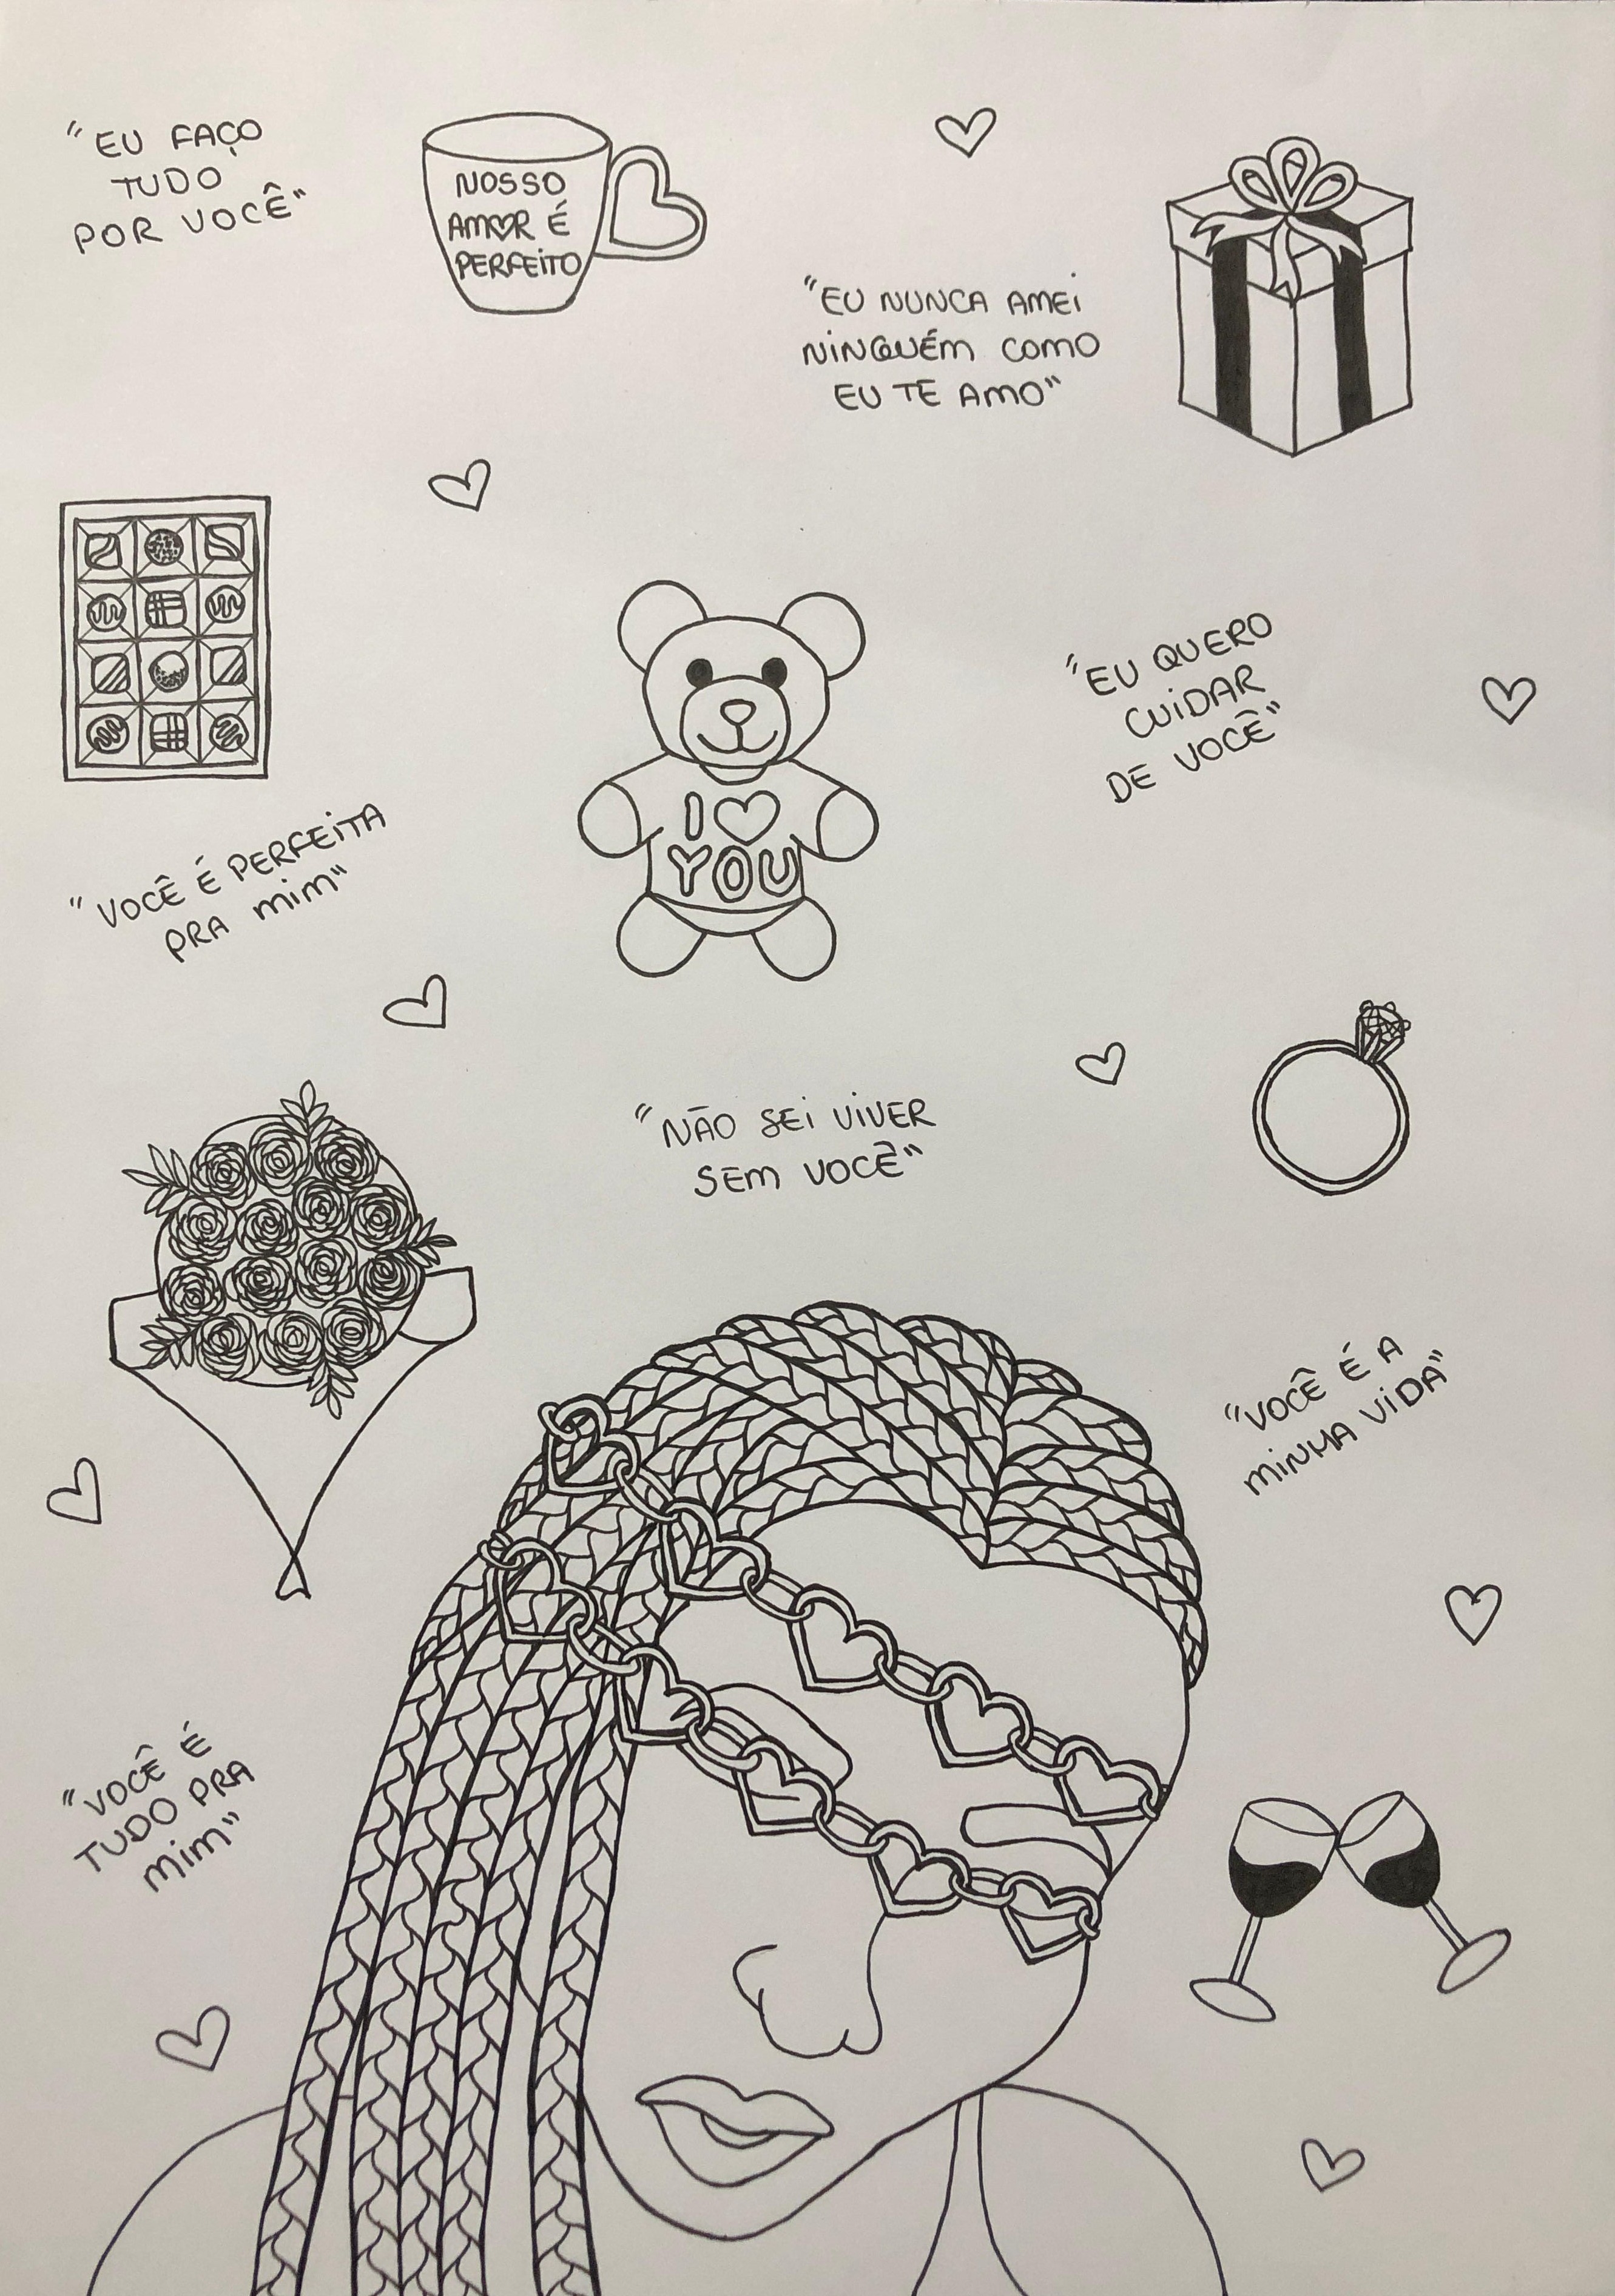 "EU FAÇO
TUDO
POR VOCÊ"
NOSSO
AMOR É
PERFEITO
"EU NUNCA AMEI
NINGUÉM COMO
EU TE AMO"
I ♡
YOU
"EU QUERO
CUIDAR
DE VOCÊ"
"VOCÊ É PERFEITA
PRA MIM"
"NÃO SEI VIVER
SEM VOCÊ"
"VOCÊ É A
MINHA VIDA"
"VOCÊ É
TUDO PRA
MIM"